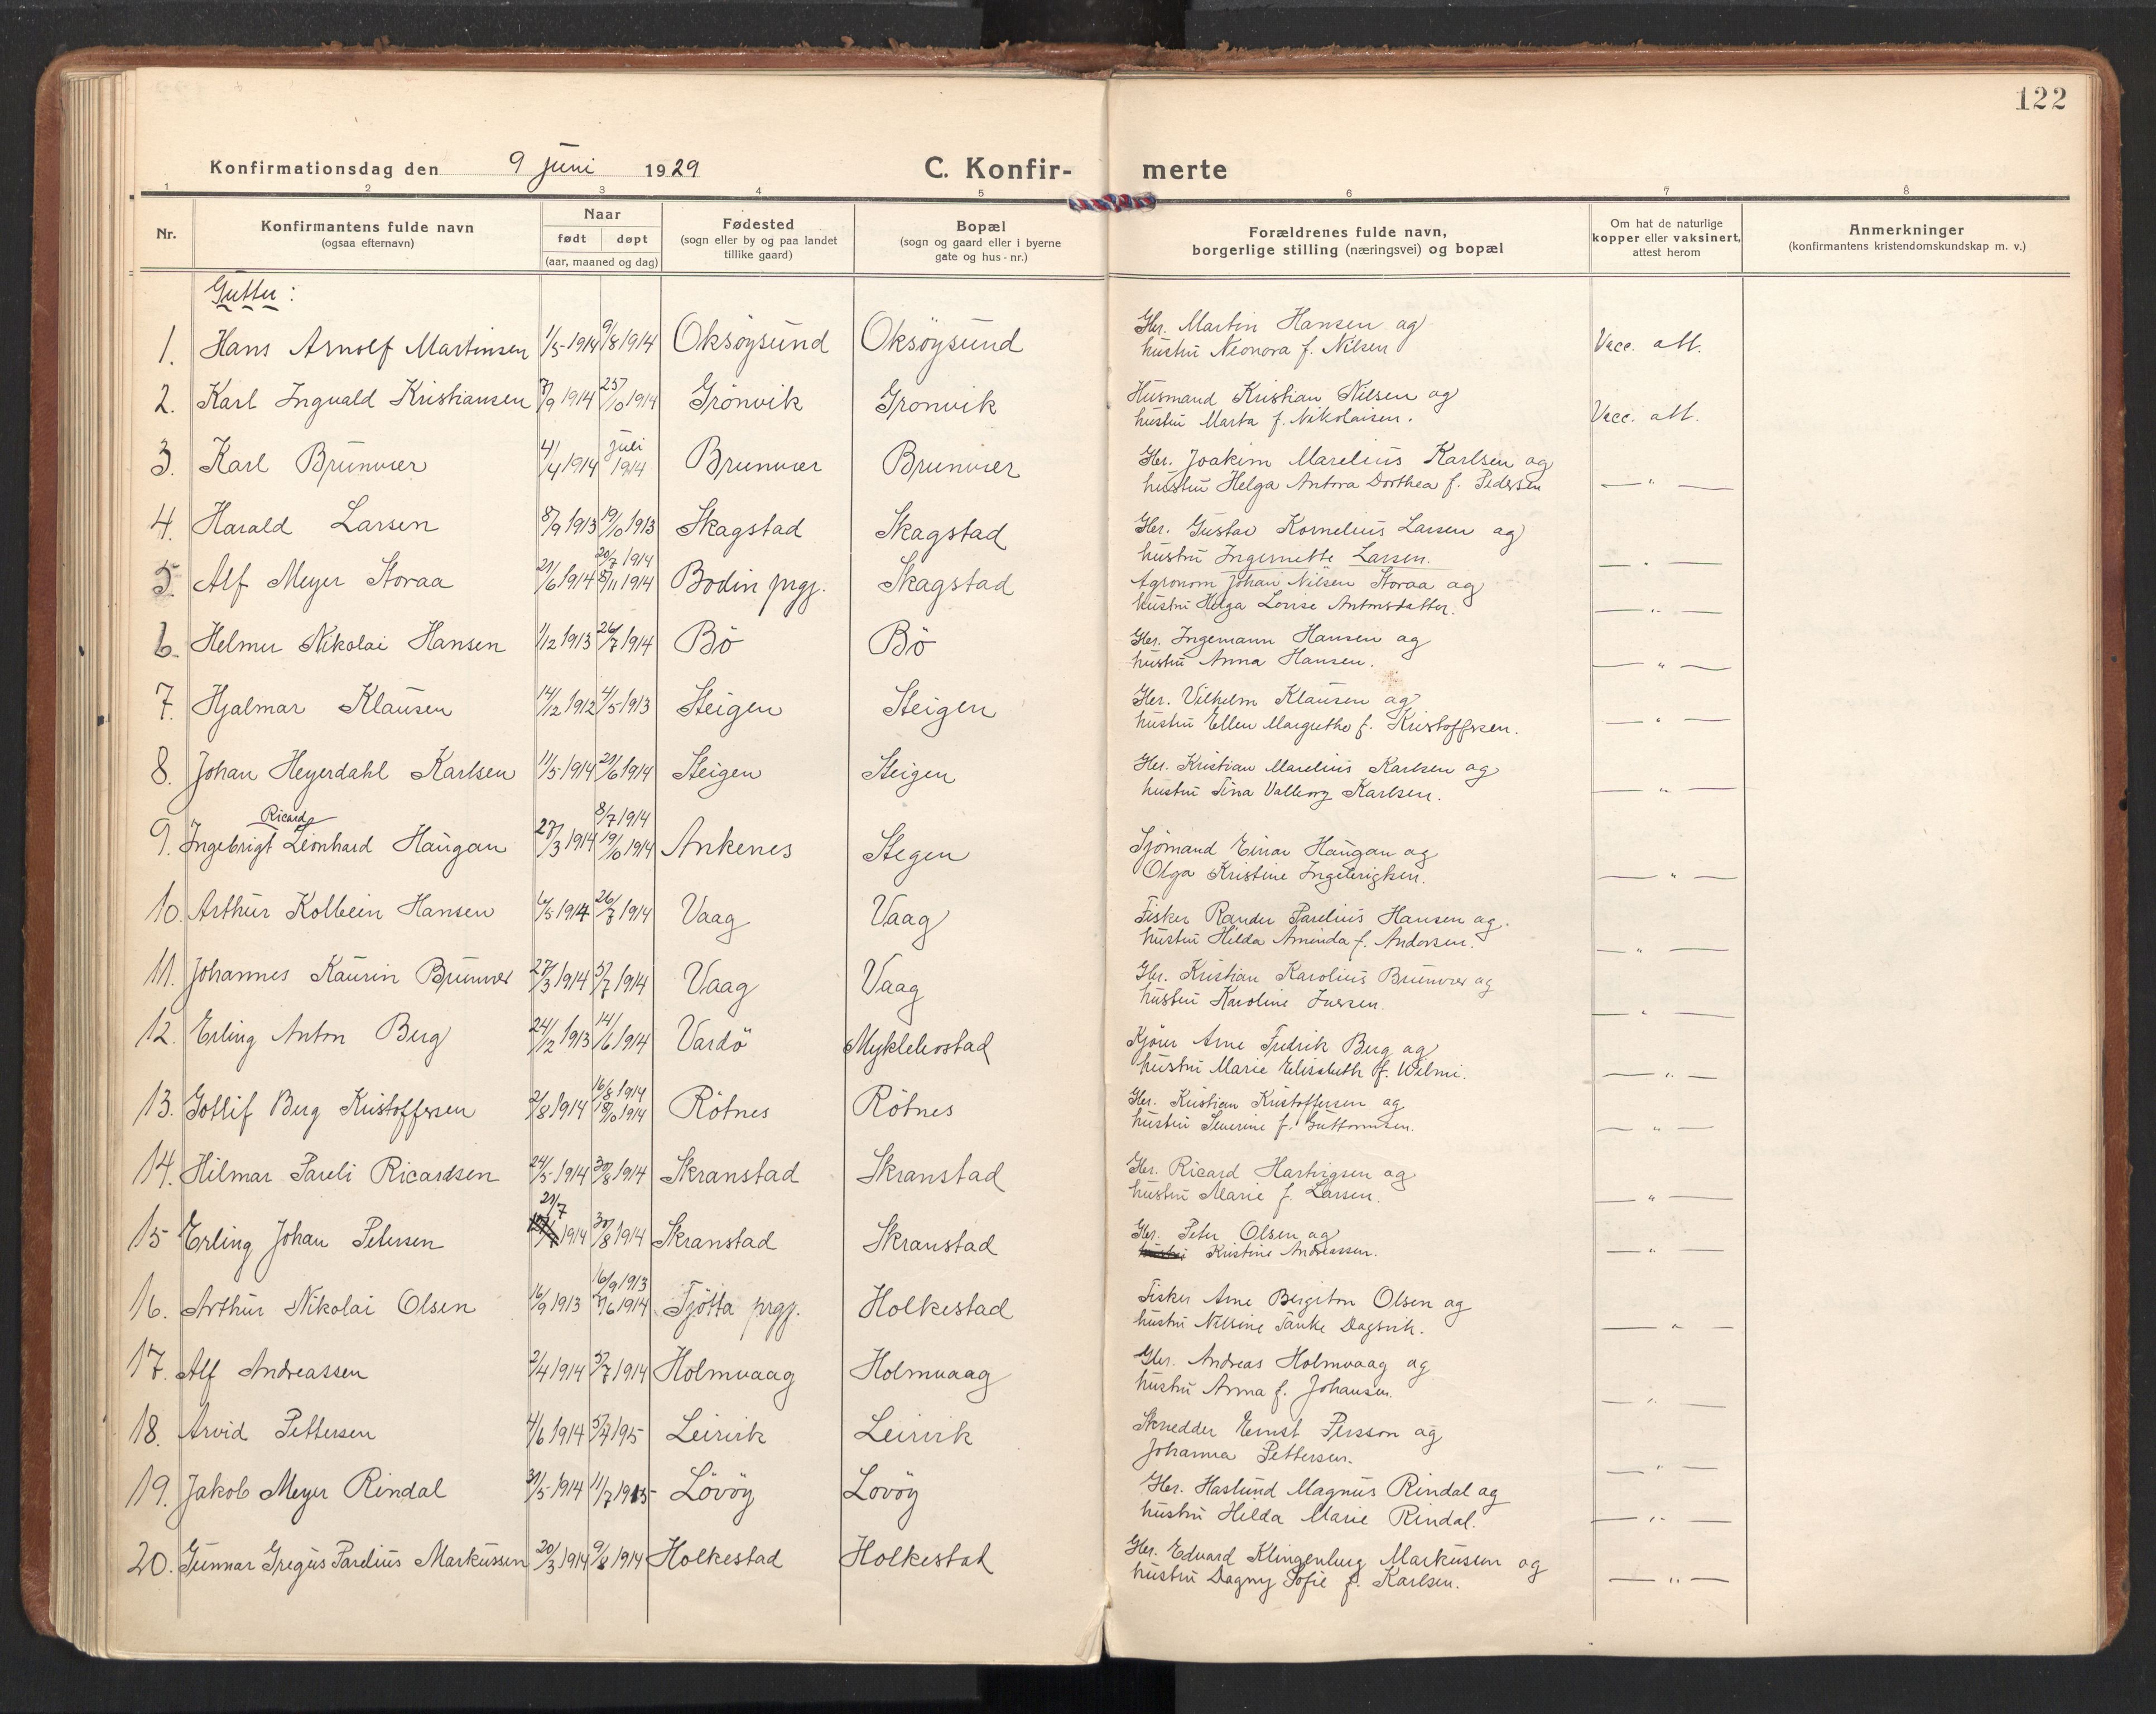 122
Konfirmationsdag den 9 juni 1929 C. Konfir- merte
1 2 3 4 5 6 7 8
Nr. Konfirmantens fulde navn (ogsaa efternavn) Naar født døpt (aar, maaned og dag) Fødested (sogn eller by og paa landet tillike gaard) Bopæl (sogn og gaard eller i byerne gate og hus-nr.) Forældrenes fulde navn, borgerlige stilling (næringsvei) og bopæl Om hat de naturlige kopper eller vaksinert, attest herom Anmerkninger (konfirmantens kristendomskundskap m. v.)
Gutter:
1. Hans Arnolf Martinsen 1/5 1914 9/8 1914 Oksöysund Oksöysund Gbr. Martin Hansen og
hustru Neonora f. Nilsen Vacc. att.
2. Karl Ingvald Kristiansen 7/9 1914 25/10 1914 Grönvik Gronvik Husmand Kristian Nilsen og
hustru Marta f. Nikolaisen. Vacc. att.
3. Karl Brunvær 4/4 1914 juli 1914 Brunvær Brunvær Gbr. Joakim Marelius Karlsen og
hustru Helga Antora Dorthea f. Pedersen — " —
4. Harald Larsen 8/9 1913 19/10 1913 Skagstad Skagstad Gbr. Gustav Kornelius Larsen og
hustru Ingernette Larsen. — " —
5. Alf Meyer Storaa 21/6 1914 20/7 1914 8/11 1914 Bodin prgj. Skagstad Agronom Johan Nilsen Storaa og
hustru Helga Lovise Antonsdatter. — " —
6. Helmer Nikolai Hansen 1/12 1913 26/7 1914 Bö Bö Gbr. Ingemann Hansen og
hustru Anna Hansen. — " —
7. Hjalmar Klausen 14/12 1912 4/5 1913 Steigen Steigen Gbr. Vilhelm Klausen og
hustru Ellen Margrethe f. Kristoffersen. — " —
8. Johan Heyerdahl Karlsen 11/5 1914 21/6 1914 Steigen Steigen Gbr. Kristian Marelius Karlsen og
hustru Tina Valborg Karlsen. — " —
9. Ingebrigt Ricard Leonhard Haugan 27/3 1914 8/7 1914 19/10 1914 Ankenes Stegen Sjömand Einar Haugan og
Olga Kristine Ingebrigtsen. — " —
10. Arthur Kolbein Hansen 6/5 1914 26/7 1914 Vaag Vaag Fisker Rander Parelius Hansen og
hustru Hilda Aminda f. Andersen. — " —
11. Johannes Kaurin Brunvær 27/3 1914 5/7 1914 Vaag Vaag Gbr. Kristian Karolius Brunvær og
hustru Karoline Iversen. — " —
12. Erling Anton Berg 24/12 1913 14/6 1914 Vardö Myklebostad Kjörer Arne Fredrik Berg og
hustru Marie Elisabeth f. Wilmi. — " —
13. Gotlif Berg Kristoffersen 2/8 1914 16/8 1914 18/10 1914 Rötnes Rötnes Gbr. Kristian Kristoffersen og
hustru Severine f. Guttormsen. — " —
14. Hilmar Pareli Ricardsen 24/5 1914 30/8 1914 Skranstad Skranstad Gbr. Ricard Hartvigsen og
hustru Marie f. Larsen. — " —
15 Erling Johan Petersen 21/7 1914 30/8 1914 Skranstad Skranstad Gbr. Peter Olsen og
hustru Kristine Andreassen. — " —
16. Arthur Nikolai Olsen 16/9 1913 16/9 1913 7/6 1914 Tjötta prgj. Holkestad Fisker Arne Bergiton Olsen og
hustru Nilsine Tanke Dagsvik. — " —
17. Alf Andreassen 2/4 1914 5/7 1914 Holmvaag Holmvaag Gbr. Andreas Holmvaag og
hustru Anna f. Johansen. — " —
18. Arvid Pettersen 4/6 1914 5/7 195 Leirvik Leirvik Skredder Ernst Persson og
Johanna Pettersen. — " —
19. Jakob Meyer Rindal 31/5 1914 11/7 1915 Lövöy Lovöy Gbr. Haslund Magnus Rindal og
hustru Hilda Marie Rindal. — " —
20. Gunnar Gregus Parelius Markussen 20/3 1914 9/8 1914 Holkestad Holkestad Gbr. Edvard Klingenberg Markusen og
hustru Dagny Sofie f. Karlsen. — " —